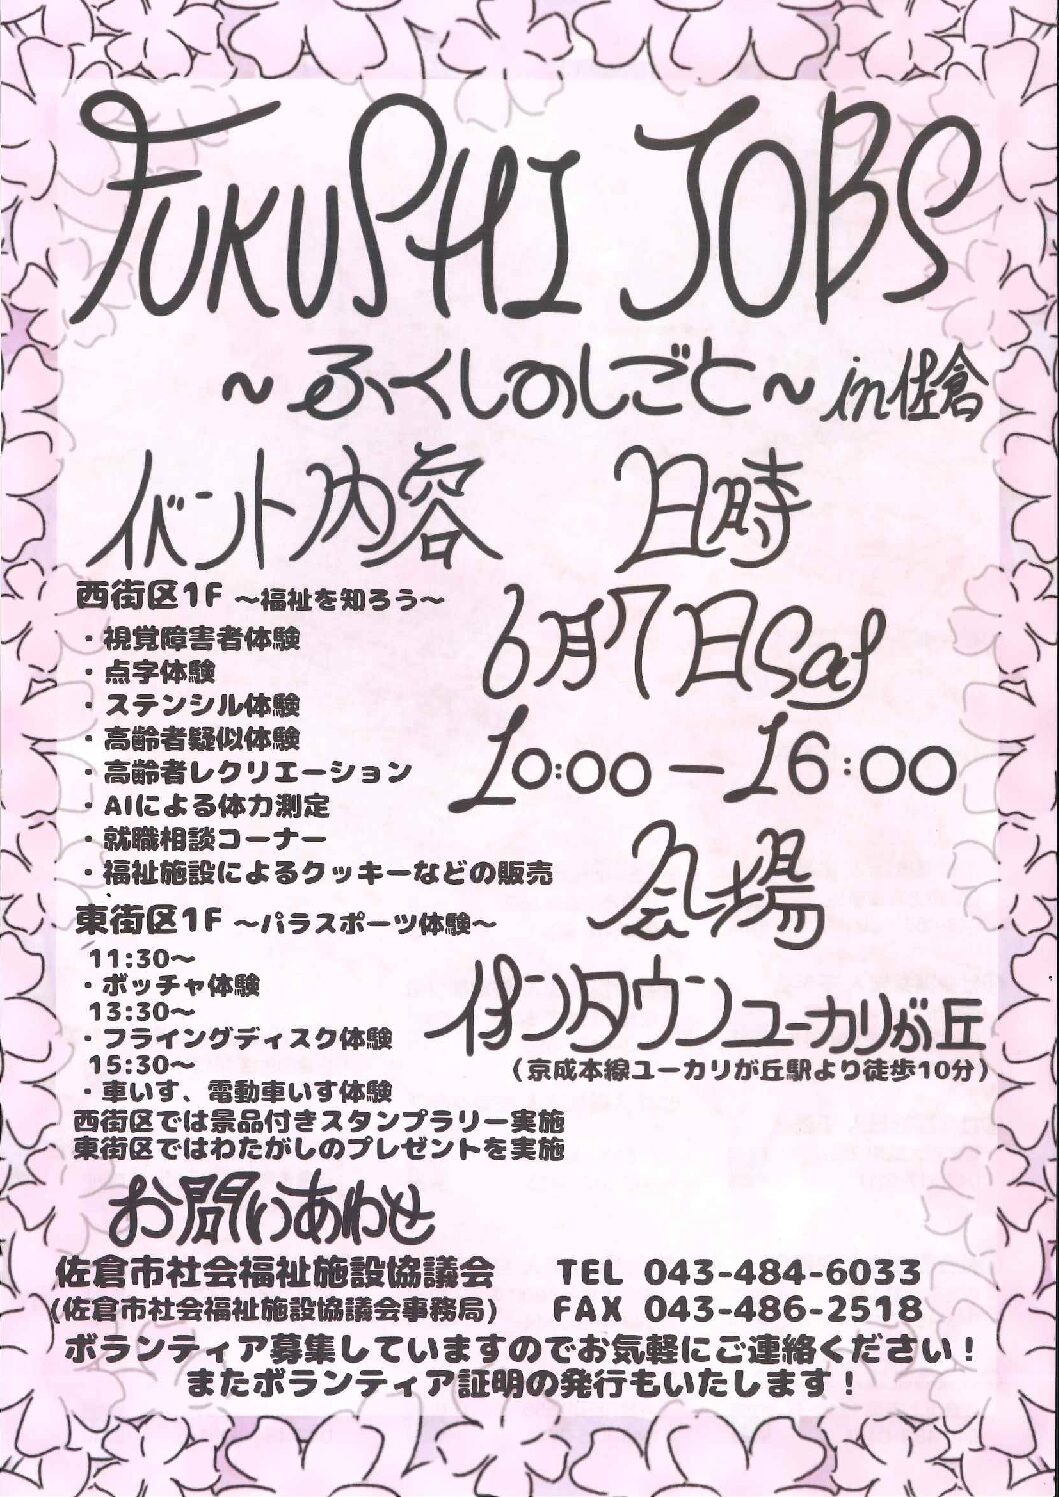 FUKUSHI JOBS
～ふくしのしごと～ in佐倉
イベント内容
西街区1F ～福祉を知ろう～
・視覚障害者体験
・点字体験
・ステンシル体験
・高齢者疑似体験
・高齢者レクリエーション
・AIによる体力測定
・就職相談コーナー
・福祉施設によるクッキーなどの販売
東街区1F ～パラスポーツ体験～
11:30～
・ボッチャ体験
13:30～
・フライングディスク体験
15:30～
・車いす、電動車いす体験
西街区では景品付きスタンプラリー実施
東街区ではわたがしのプレゼントを実施
日時
6月7日Sat
10:00－16:00
会場
イオンタウンユーカリが丘
（京成本線ユーカリが丘駅より徒歩10分）
お問いあわせ
佐倉市社会福祉施設協議会 TEL 043-484-6033
(佐倉市社会福祉施設協議会事務局) FAX 043-486-2518
ボランティア募集していますのでお気軽にご連絡ください！
またボランティア証明の発行もいたします！